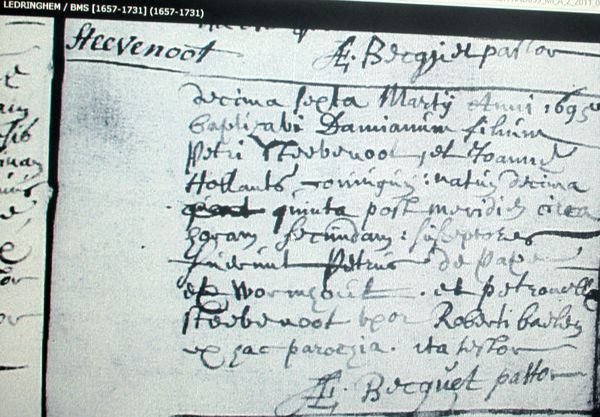 LEDRINGHEM / BMS [1657-1731] (1657-1731)
Steevenoot
Æ. Becquet pastor
decima sexta Martÿ Anni 1695
baptizavi Damianum filium
Petri Steevenoot et Joannæ
Hollants coniugum : natum decima
quinta post meridiem circa
horam secundam : susceptores
fuerunt Petrus de Pape
ex wormhout . et petronella
steevenoot uxor Roberti
ex hac parochia . ita testor
Æ. Becquet pastor